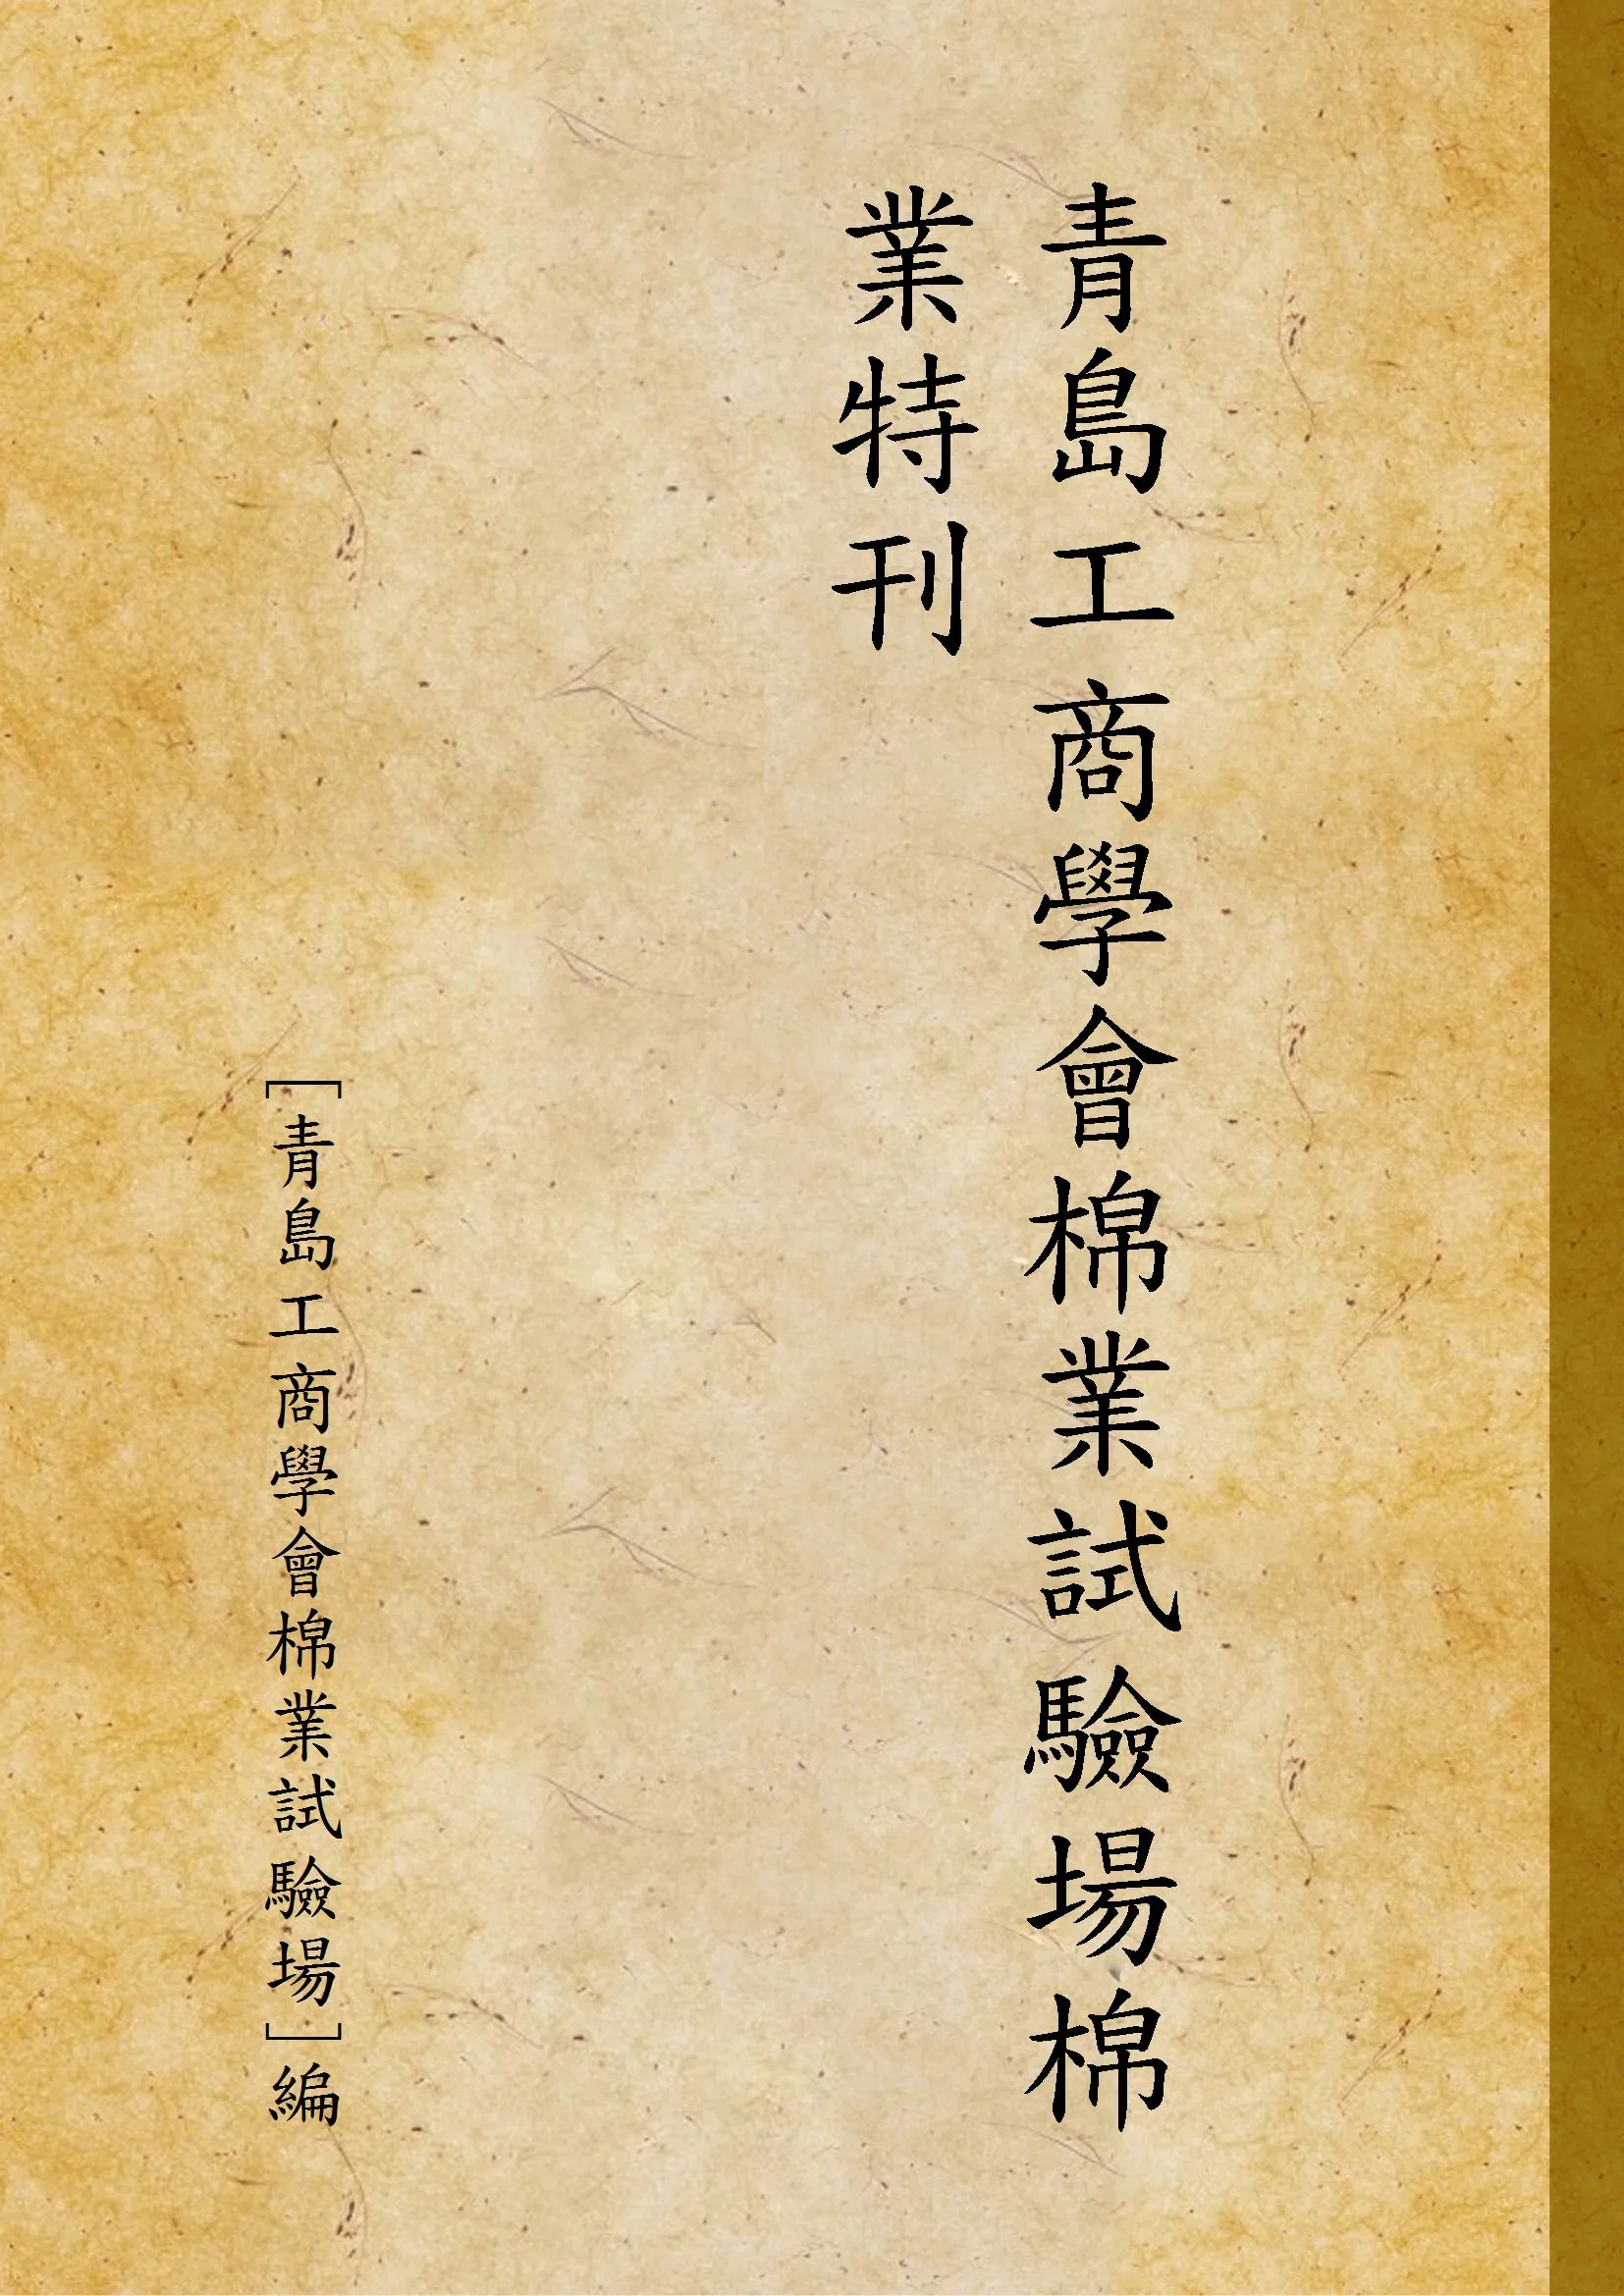 青島工商學會棉業試驗場棉
業特刊
［青島工商學會棉業試驗場］編